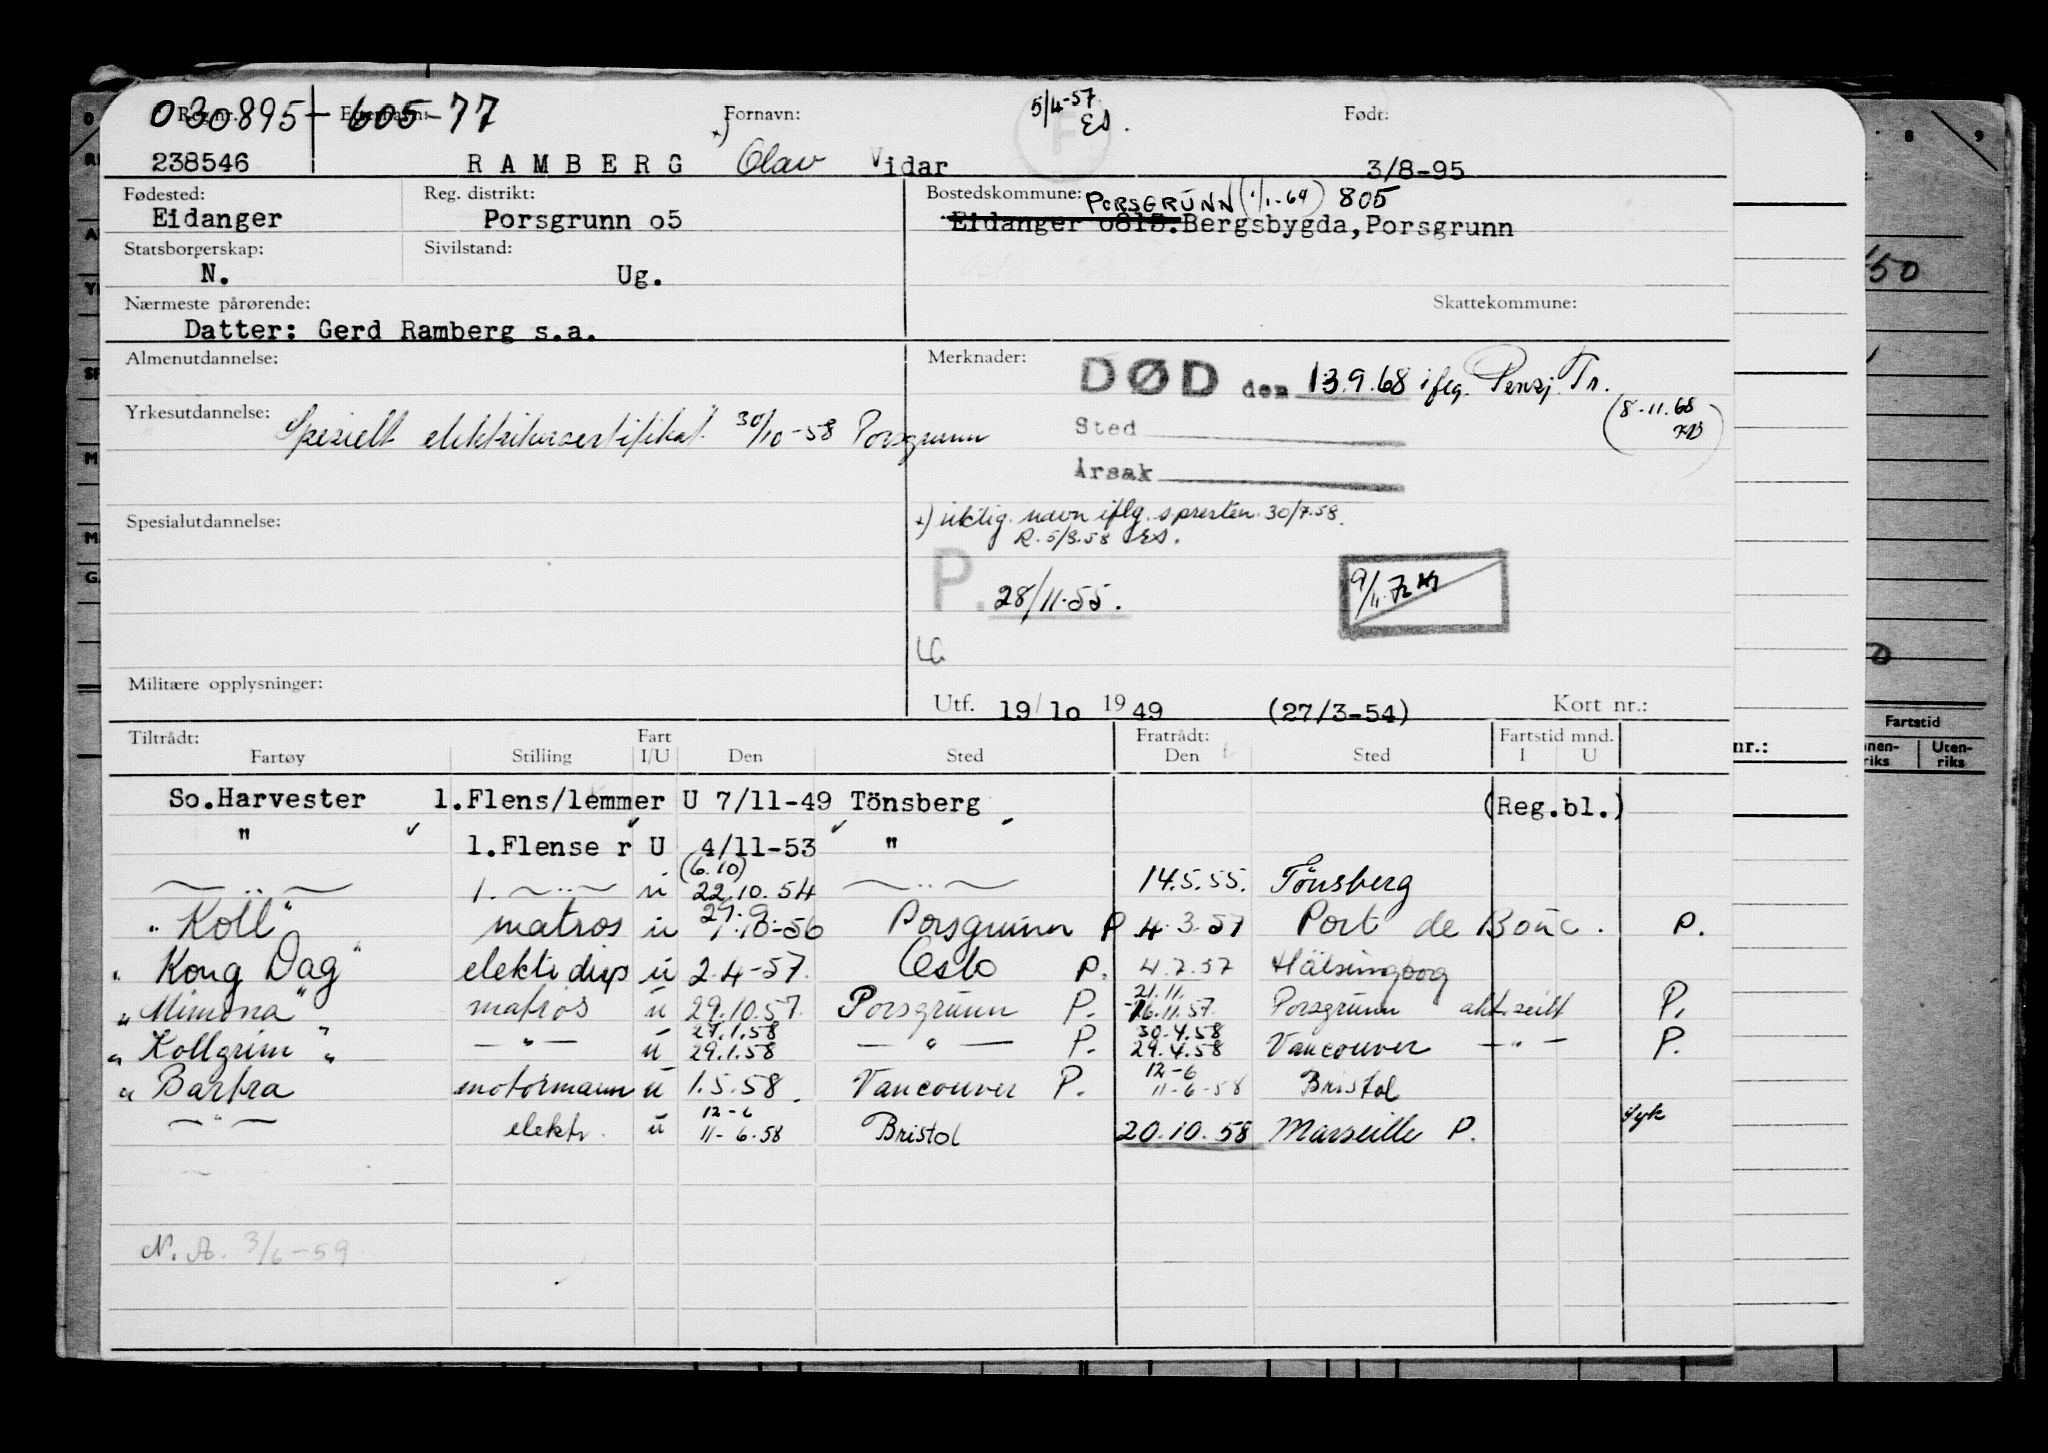 030895 605-77
Reg.nr. Etternavn: Fornavn: 5/4-57 Født:
ES.
238546 RAMBERG +) Olav Vidar 3/8-95
Fødested: Reg. distrikt: Bostedskommune: PORSGRUNN (1/1-64) 805
Eidanger Porsgrunn o5 Eidanger o815. Bergsbygda, Porsgrunn
Statsborgerskap: Sivilstand:
N. Ug.
Nærmeste pårørende: Skattekommune:
Datter: Gerd Ramberg s.a.
Almenutdannelse: Merknader: DØD den 13.9.68 iflg. Pensj. Tr.
(8-11.68
Yrkesutdannelse: Spesielt elektrikersertifikat 30/10-58 Porsgrunn
Sted
Årsak
Spesialutdannelse: +) riktig navn iflg. s presten 30/7.58.
R. 5/8.58 ES.
P. 28/11.55. 9/11.72
LG
Militære opplysninger:
Utf. 19/10 1949 (27/3-54) Kort nr.:
Tiltrådt: Fart Fratrådt: Fartstid mnd.
Fartøy Stilling I/U Den Sted Den Sted I U
So.Harvester 1.Flens/lemmer U 7/11-49 Tönsberg (Reg.bl.)
" 1.Flense r U 4/11-53 "
(6.10)
—"— 1. —"— u 22.10.54 —"— 14.5.55. Tönsberg
"Koll" matros u 29.9.-56 Porsgrunn P 4.3.57 Port de Bouc. P.
"Kong Dag" elektr disp u 2.4-57. Oslo P. 4.7.57 Hälsingborg
21.11.
"Mimona" matros u 29.10.57. Porsgrunn P. 16.11.57. Porsgrunn akt.seilt P.
27.1.58 30.4.58
"Kollgrim" —"— u 29.1.58 —"— P. 29.4.58 Vancouver —"— P.
12-6
" Barbra motormann u 1.5.58. Vancouver P. 11-6-58 Bristol
12-6
—"— elektr. u 11-6.58 Bristol 20.10.58 Marseille P. syk
N. A. 3/6-59
8 9
50
nr.:
Fartstid
Innen-riks Uten-riks